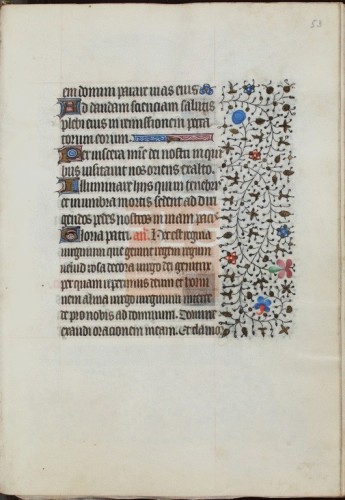 53
em domini parare vias eius
Ad dandam scientiam salutis
plebi eius in remissionem pecca
torum eorum.
Per viscera mīe dei nostri in qui
bus visitavit nos oriens exalto.
Illuminare hiis qui in tenebris
et in umbra mortis sedent ad diri
gendos pedes nostros in viam pacis
Gloria patri. añ. Hec est regina
virginum que genuit regem velud
rosa decora virgo dei genitrix
per quam reperimus deum et homi
nem alma virgo virginum interce
de pro nobis ad dominum. Domine
exaudi orationem meam. Et clamor